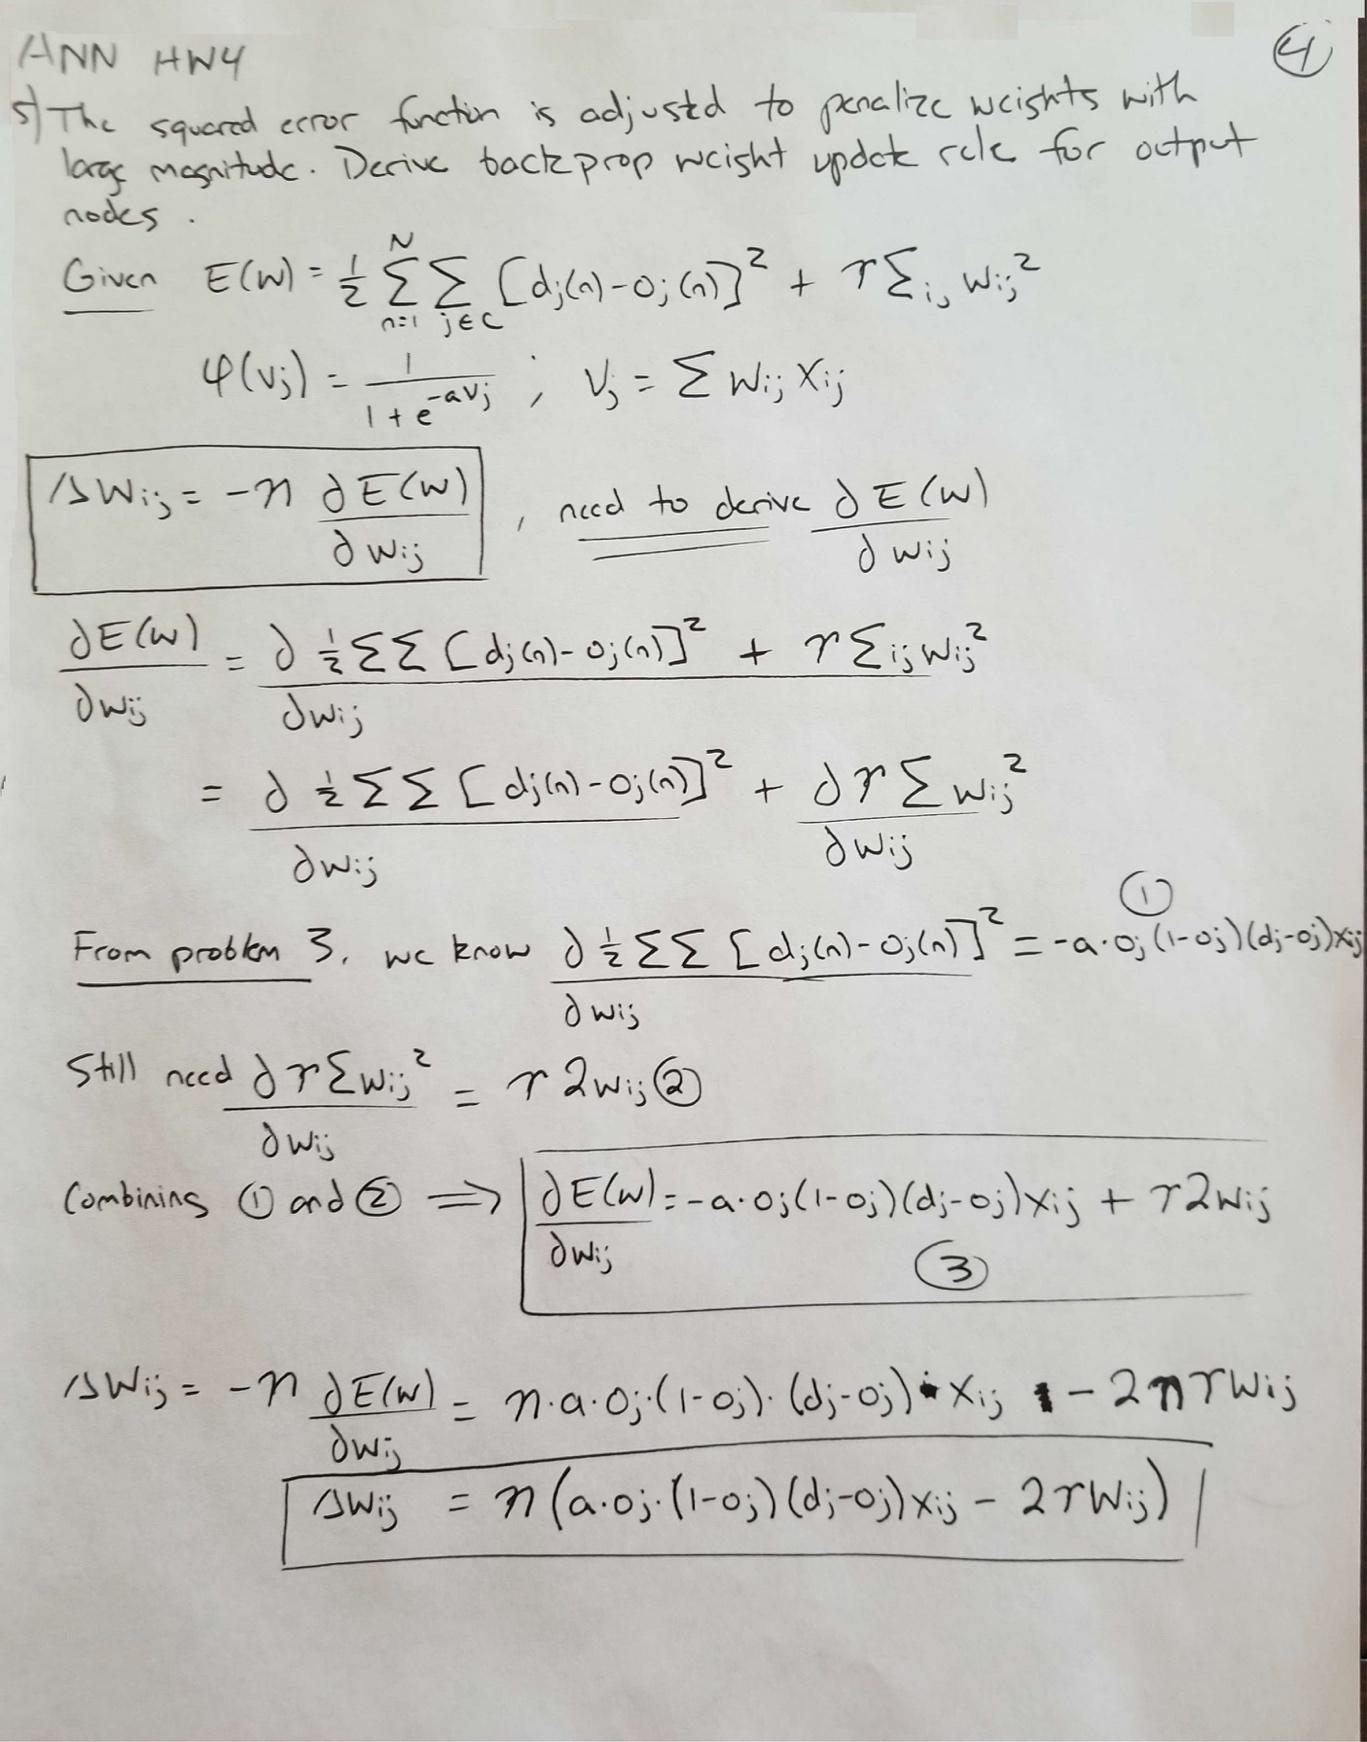 ANN HW4
④
5) The squared error function is adjusted to penalize weights with
large magnitude. Derive backprop weight update rule for output
nodes.
Given E(w) = 1/2 Σ_{n=1}^{N} Σ_{j∈C} [dj(n)-oj(n)]² + r Σij wij²
φ(vj) = 1/(1+e^{-avj}) ; vj = Σ wij xij
Δwij = -η ∂E(w)/∂wij , need to derive ∂E(w)/∂wij
∂E(w)/∂wij = ∂ 1/2 ΣΣ [dj(n)-oj(n)]² + r Σij wij² / ∂wij
= ∂ 1/2 ΣΣ [dj(n)-oj(n)]² / ∂wij + ∂ r Σ wij² / ∂wij
①
From problem 3, we know ∂ 1/2 ΣΣ [dj(n)-oj(n)]² / ∂wij = -a·oj(1-oj)(dj-oj)xij
Still need ∂ r Σ wij² / ∂wij = r 2wij ②
Combining ① and ② ⟹ ∂E(w)/∂wij = -a·oj(1-oj)(dj-oj)xij + r2wij
③
Δwij = -η ∂E(w)/∂wij = η·a·oj·(1-oj)·(dj-oj)·xij - 2ηrwij
Δwij = η(a·oj·(1-oj)(dj-oj)xij - 2rwij)